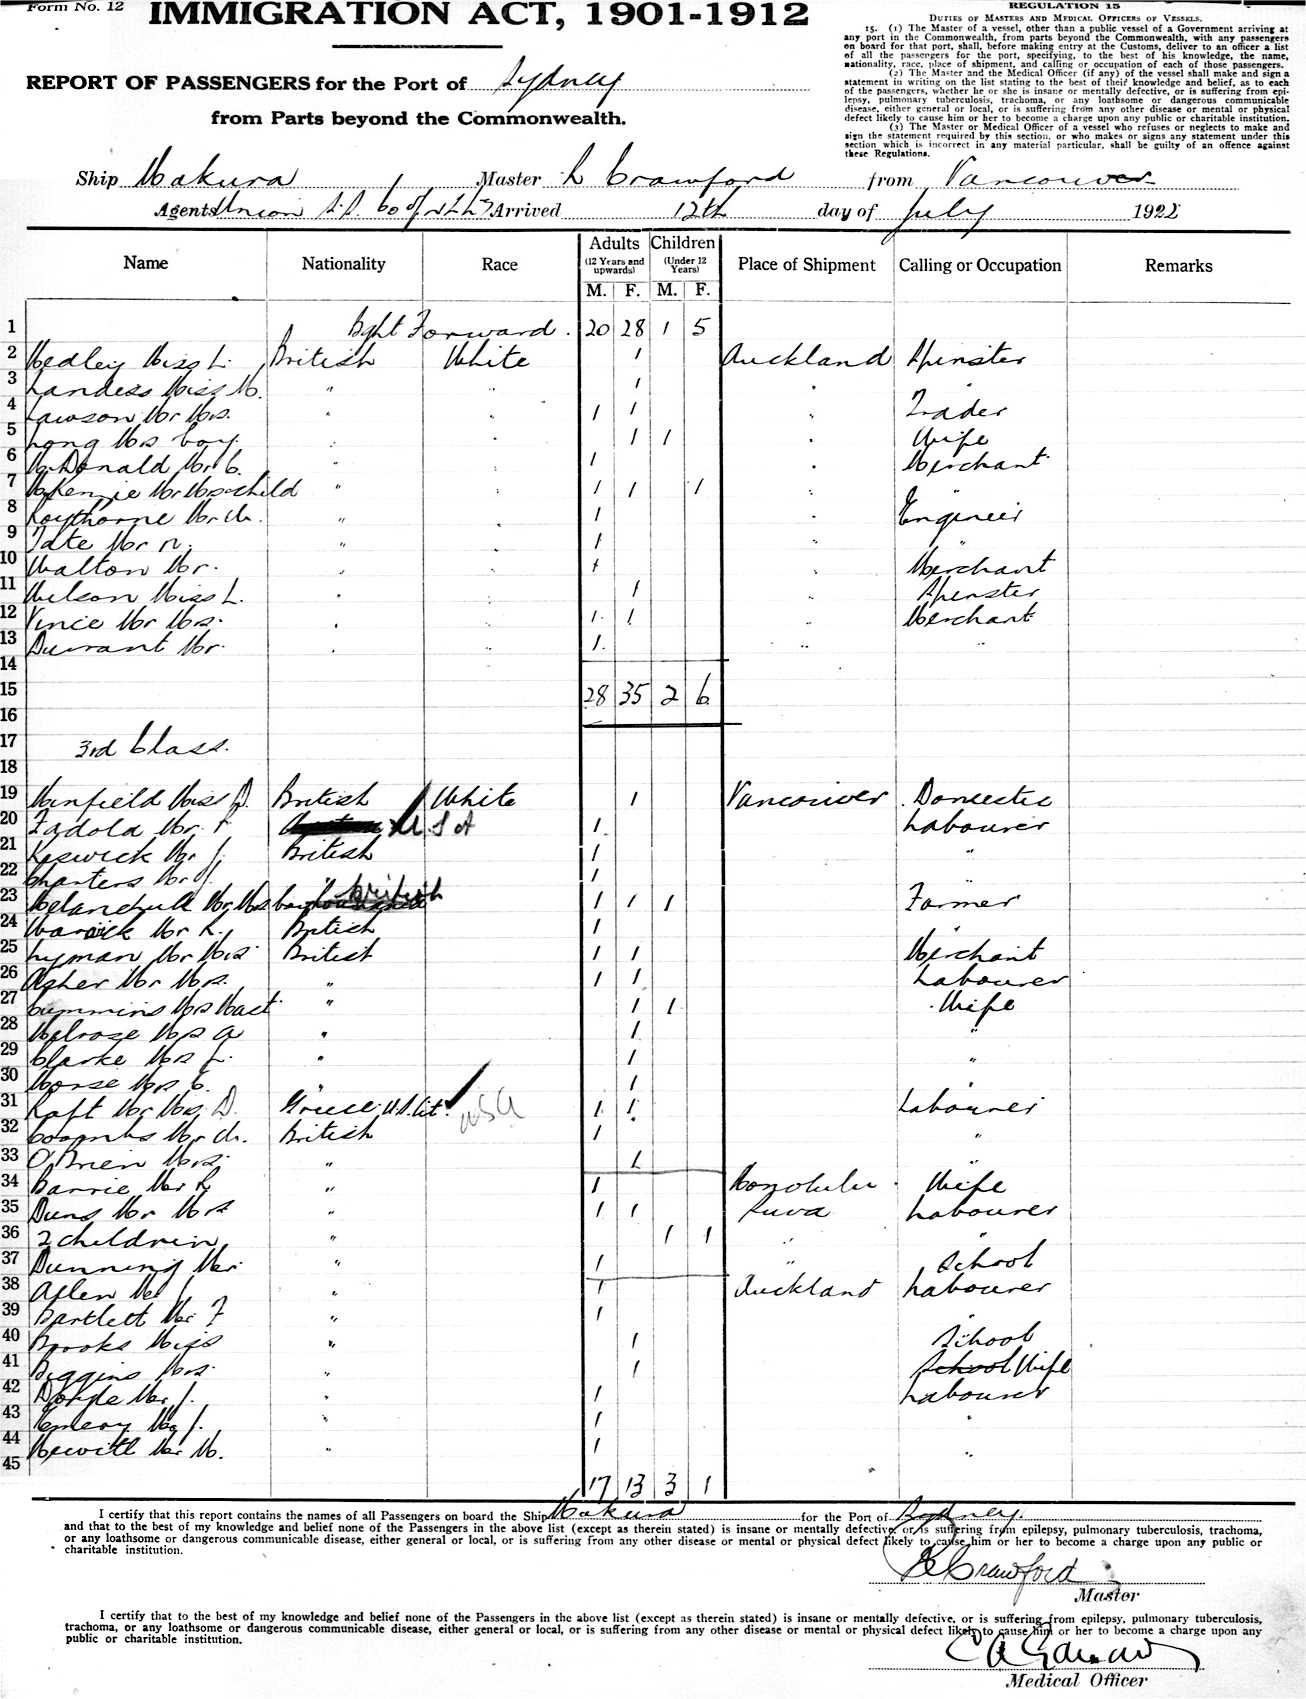 Form No. 12
IMMIGRATION ACT, 1901-1912
REPORT OF PASSENGERS for the Port of Sydney
from Parts beyond the Commonwealth.
REGULATION 15
DUTIES OF MASTERS AND MEDICAL OFFICERS OF VESSELS.
15. (1) The Master of a vessel, other than a public vessel of a Government arriving at
any port in the Commonwealth, from parts beyond the Commonwealth, with any passengers
on board for that port, shall, before making entry at the Customs, deliver to an officer a list
of all the passengers for the port, specifying, to the best of his knowledge, the name,
nationality, race, place of shipment, and calling or occupation of each of those passengers.
(2) The Master and the Medical Officer (if any) of the vessel shall make and sign a
statement in writing on the list stating to the best of their knowledge and belief, as to each
of the passengers, whether he or she is insane or mentally defective, or is suffering from epi-
lepsy, pulmonary tuberculosis, trachoma, or any loathsome or dangerous communicable
disease, either general or local, or is suffering from any other disease or mental or physical
defect likely to cause him or her to become a charge upon any public or charitable institution.
(3) The Master or Medical Officer of a vessel who refuses or neglects to make and
sign the statement required by this section, or who makes or signs any statement under this
section which is incorrect in any material particular, shall be guilty of an offence against
these Regulations.
Ship Makura Master L Crawford from Vancouver
Agents Union S.S. Co of N Z Ltd Arrived 12th day of July 1922
Name Nationality Race Adults (12 Years and upwards) M. F. Children (Under 12 Years) M. F. Place of Shipment Calling or Occupation Remarks
1 Bght Forward. 20 28 1 5
2 Medley Miss L. British White 1 Auckland Spinster
3 Landess Miss M. " " 1 " "
4 Lawson Mr Mrs. " " 1 1 " Trader
5 Long Mrs boy. " " 1 1 " Wife
6 McDonald Mr C. " " 1 " Merchant
7 McKenzie Mr Mrs child " " 1 1 1 " "
8 Raythorne Mr W. " " 1 " Engineer
9 Tate Mr N. " " 1 " "
10 Walton Mr. " " 1 " Merchant
11 Wilson Miss L. " " 1 " Spinster
12 Vince Mr Mrs. " " 1 1 " Merchant
13 Durrant Mr. " " 1 " "
14
15 28 35 2 6
16
17 3rd Class.
18
19 Winfield Miss D. British White 1 Vancouver Domestic
20 Zadola Mr. F U.S A 1 Labourer
21 Keswick Mr J. British 1 "
22 Charters Mr J. " 1 "
23 Melanchuk Mr Mrs boy British 1 1 1 Farmer
24 Warwick Mr R. British 1 "
25 Lyman Mr Mrs British 1 1 Merchant
26 Asher Mr Mrs. " 1 1 Labourer
27 Cummins Mrs Mast " 1 1 Wife
28 Melrose Mrs A " 1 "
29 Clarke Mrs L. " 1 "
30 Morse Mrs C. " 1 "
31 Raft Mr Mrs D. Greece U.S. Cit. USA 1 1 Labourer
32 Coombs Mr W. British 1 "
33 O'Brien Mrs. " 1 "
34 Barrie Mr R " 1 Honolulu Wife
35 Duns Mr Mrs " 1 1 Suva Labourer
36 2 children " 1 1 " "
37 Dunning Mr. " 1 " School
38 Allen Mr J " 1 Auckland Labourer
39 Bartlett Mr F " 1 "
40 Brooks Miss " 1 School
41 Biggins Mrs. " 1 School Wife
42 Doyle Mr J. " 1 Labourer
43 Emery Mr J. " 1 "
44 Hewitt Mr M. " 1 "
45
17 13 3 1
I certify that this report contains the names of all Passengers on board the Ship Makura for the Port of Sydney.
and that to the best of my knowledge and belief none of the Passengers in the above list (except as therein stated) is insane or mentally defective, or is suffering from epilepsy, pulmonary tuberculosis, trachoma,
or any loathsome or dangerous communicable disease, either general or local, or is suffering from any other disease or mental or physical defect likely to cause him or her to become a charge upon any public or
charitable institution.
Crawford
Master
I certify that to the best of my knowledge and belief none of the Passengers in the above list (except as therein stated) is insane or mentally defective, or is suffering from epilepsy, pulmonary tuberculosis,
trachoma, or any loathsome or dangerous communicable disease, either general or local, or is suffering from any other disease or mental or physical defect likely to cause him or her to become a charge upon any
public or charitable institution.
Medical Officer